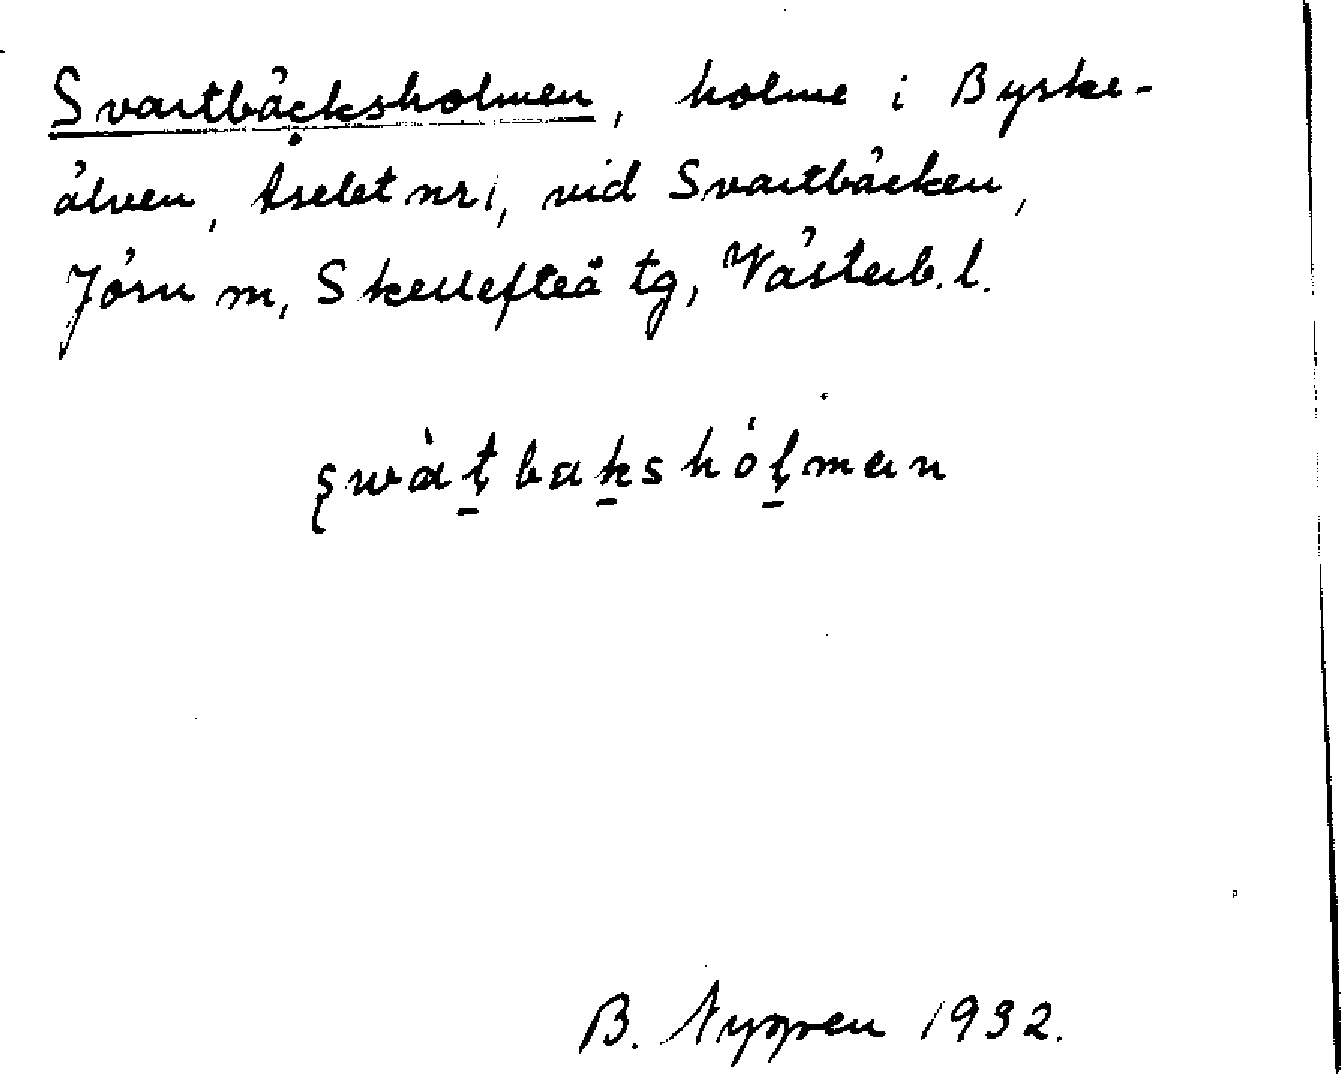 Svartbäcksholmen, holme i Byske-
älven, Åselet nr 1, vid Svartbäcken,
Jörn m, Skellefteå tg, Västerb. l.
swàt̠bak̠shól̠man
B. Nygren 1932.